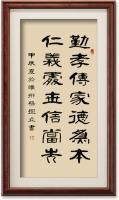 勤孝傳家德為本
仁義處世信當先